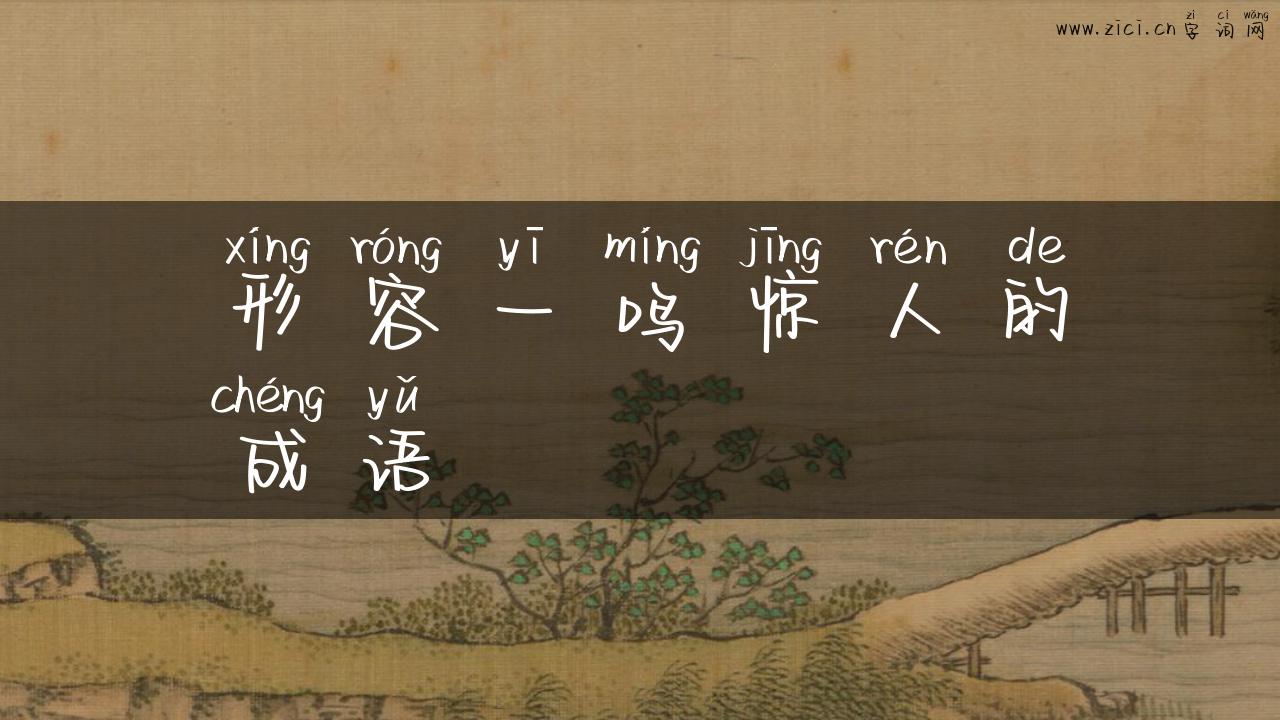 zì cí wǎng
www.zici.cn 字词网
xíng róng yī míng jīng rén de
形容一鸣惊人的
chéng yǔ
成语